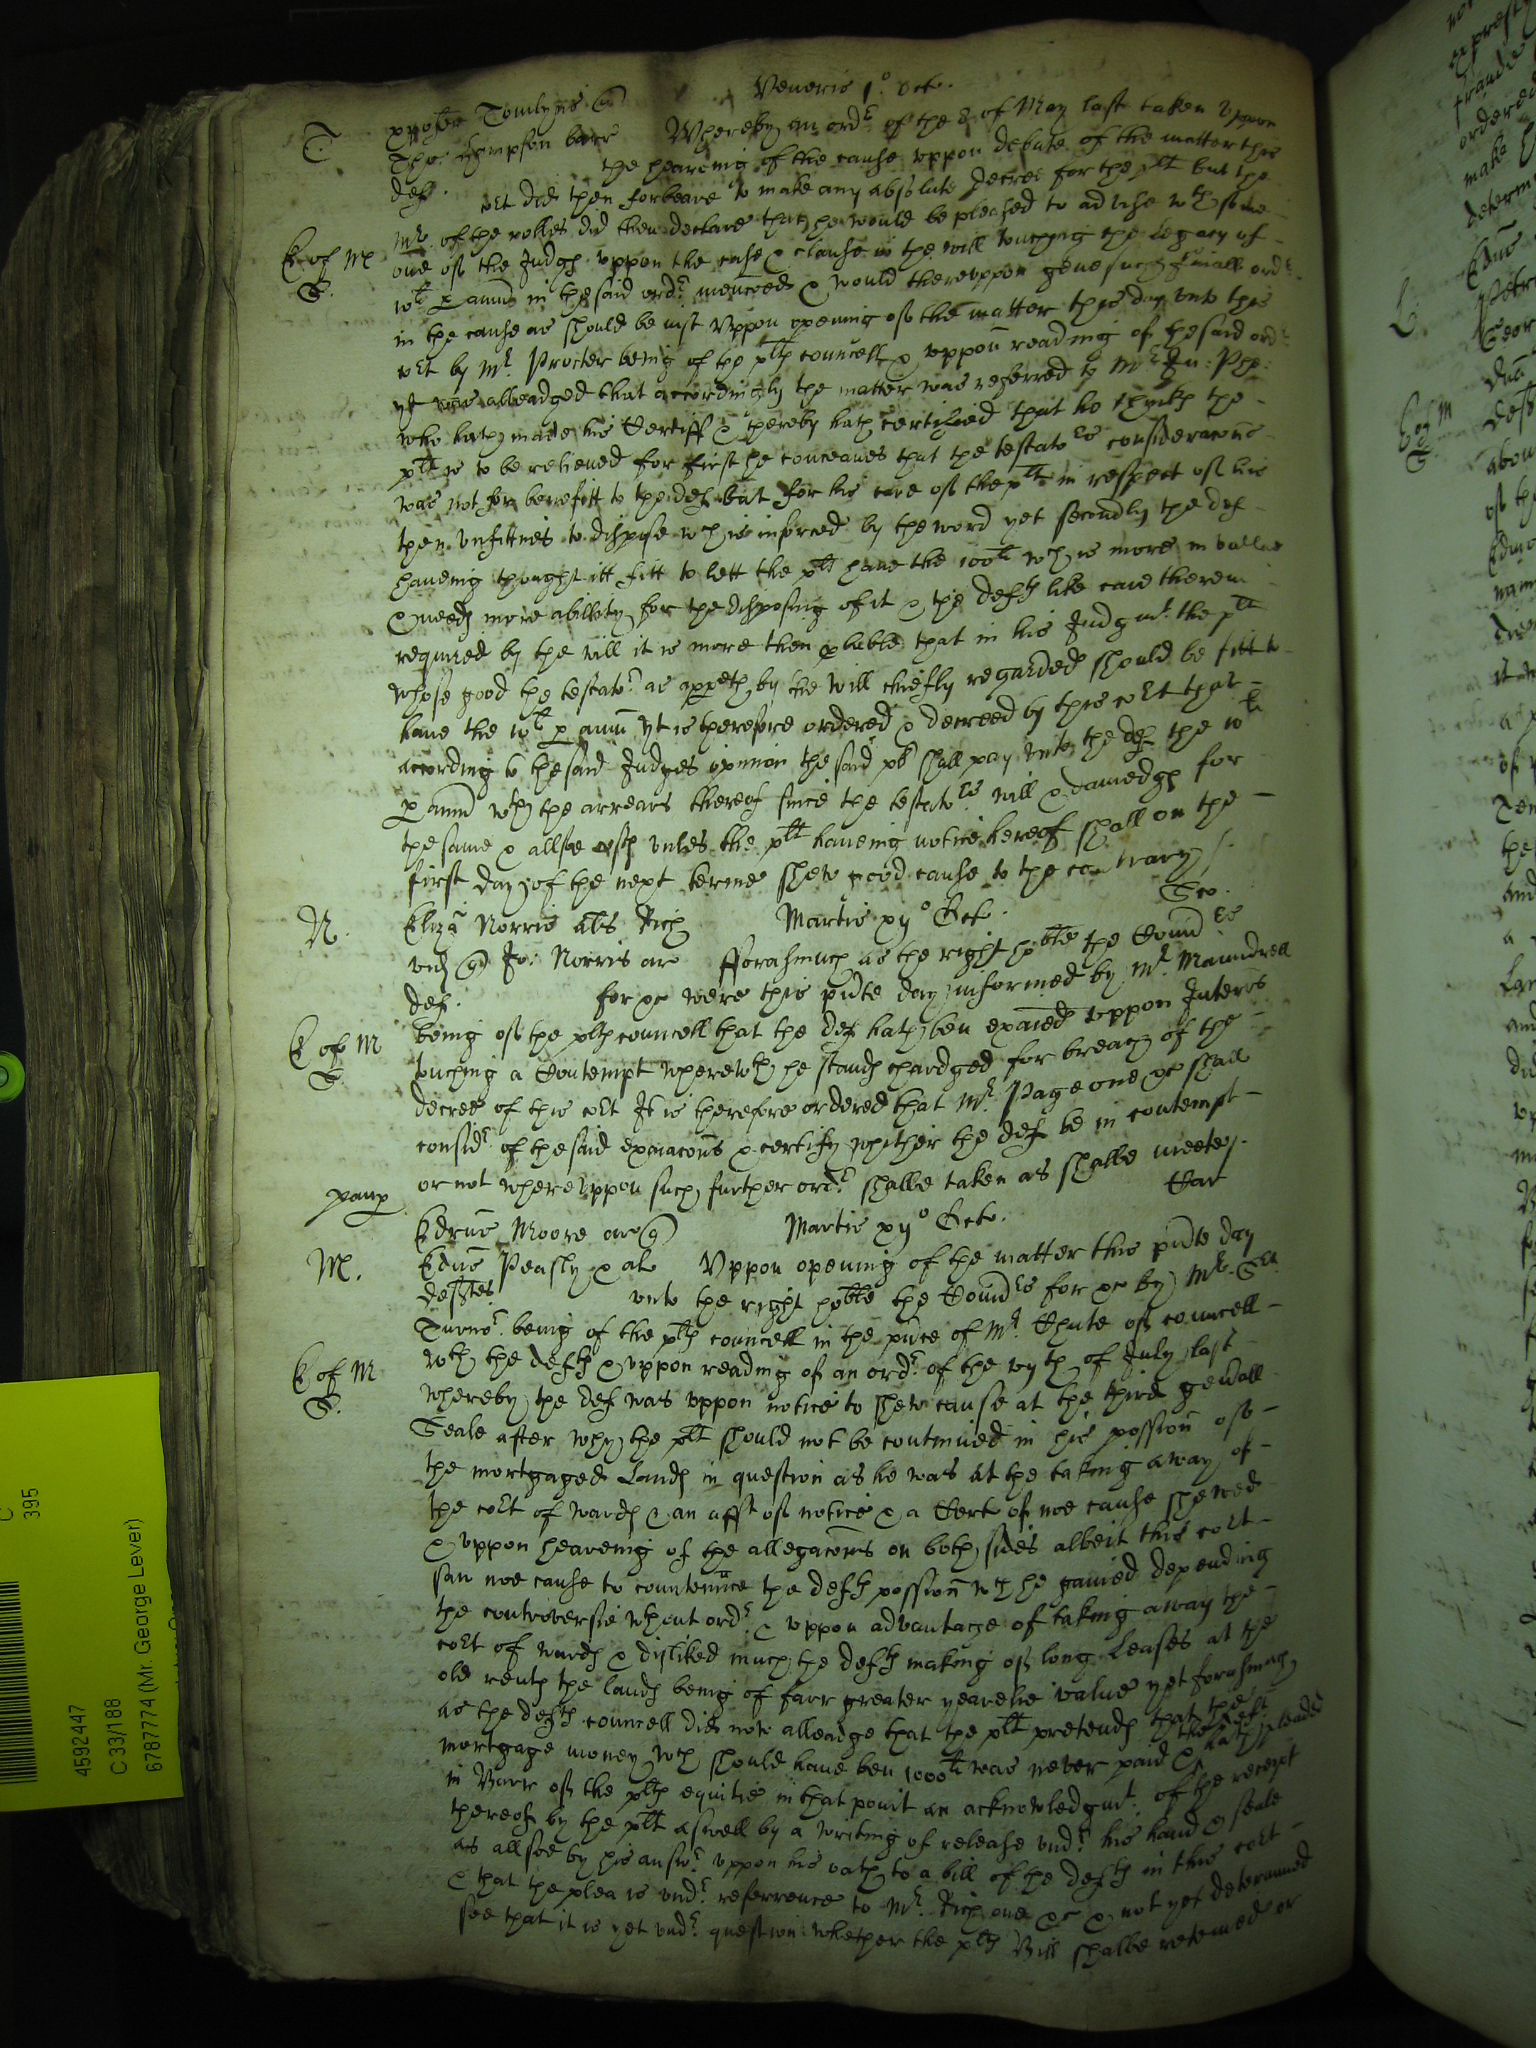 Veneris 1º Octo.
T Tomlyns
Tho: Kempson barr Whereby an ordr of the 8 of May last taken uppon
def. the heareing of the cause uppon debate of the matter this
cort did then forbeare to make any absolute decree for the plt but the
Mr of the rolles did then declare that he would be pleased to advise wth some
E of M one of the Judges uppon the case & clause in the will touching the Legacy of
S. xli p annu in the said ordr mencoed & would thereuppon give such finall ordr
in the cause as should be iust Uppon opening of the matter this day unto this
cort by Mr Procter being of the plts councell & uppon reading of the said ordr
yt was alleadged that accordingly the matter was referred to Mr Ju:
who hath made his Certiff & thereby hath certified that he thinks the
plt is to be relieved for first he conceaves that the testators consideracons
was not for benefitt to the def but for his care of the plt in respect of his
then unfittnes to dispose wch is inforced by the word yet secondly the def
haveing thought itt fitt to lett the plt have the 100li wch is more in vallue
& needs more ability for the disposing of it & the defts like care therein
required by the will it is more then pbable that in his Judgmt the plt
whose good the testator as appeth by the will chiefly regarded should be fitt to
have the xli p annu yt is therefore ordered & decreed by this cort that
according to the said Judges opinion the said plt shall pay unto the def the xli
p annu wth the arrears thereof since the testators will & damedges for
the same & allsoe costs unles the plt haveing notice hereof shall on the
first day of the next terme shew good cause to the contrary /.
Geo.
N. Eliza Norris als Rich Martis xijº Octo.
vid Jo: Norris ar fforasmuch as the right hoble the Comrs
def. for &c were this pnte day informed by Mr Maundrell
E of M being of the plts councell that the def hath ben exaied uppon Interrs
S touching a Contempt wherewth he stands chardged for breach of the
decree of this cort It is therefore ordered that Mr Page one &c shall
considr of the said exaiacons & certify whither the def be in contempt
or not whereuppon such further ordr shalbe taken as shalbe meete /.
paup Car
Edrus Moore ar Martis xijº Octo.
M. Edus Peasly & al Uppon opening of the matter this pnte day
deftes. unto the right hoble the Comrs for &c by Mr Sert
Turnor being of the plts councell in the pnce of Mr Chute of councell
E of M wth the defts & uppon reading of an ordr of the vijth of July last
S. whereby the def was uppon notice to shew cause at the third geniall
Seale after why the plt should not be continued in his possion of
the mortgaged Lands in question as he was at the taking away of
the cort of wards & an afft of notice & a Cert of noe cause shewed
& uppon heareing of the allegacons on both sides albeit this cort
saw noe cause to countennce the defts possion wch he gained depending
the controversie wthout ordr & uppon advantage of taking away the
cort of wards & disliked much the defts making of long Leases at the
old rents the lands being of farr greater yearelie value yet forasmuch
as the defts councell did now alleadge that the plt pretends that the
mortgage money wch should have ben 1000li was never paid & the deft hath pleaded
in Barr of the plts equitie in that point an acknowledgmt of the receipt
thereof by the plt aswell by a writing of release undr his hand & seale
as allsoe by his answr uppon his oath to a bill of the defts in this cort
& that the plea is undr referrence to Mr Rich one &c & not yet determined
soe that it is yet undr question whether the plts Bill shalbe reteined or
4592447
C 33/188
6787774 (Mr. George Lever)
C
395